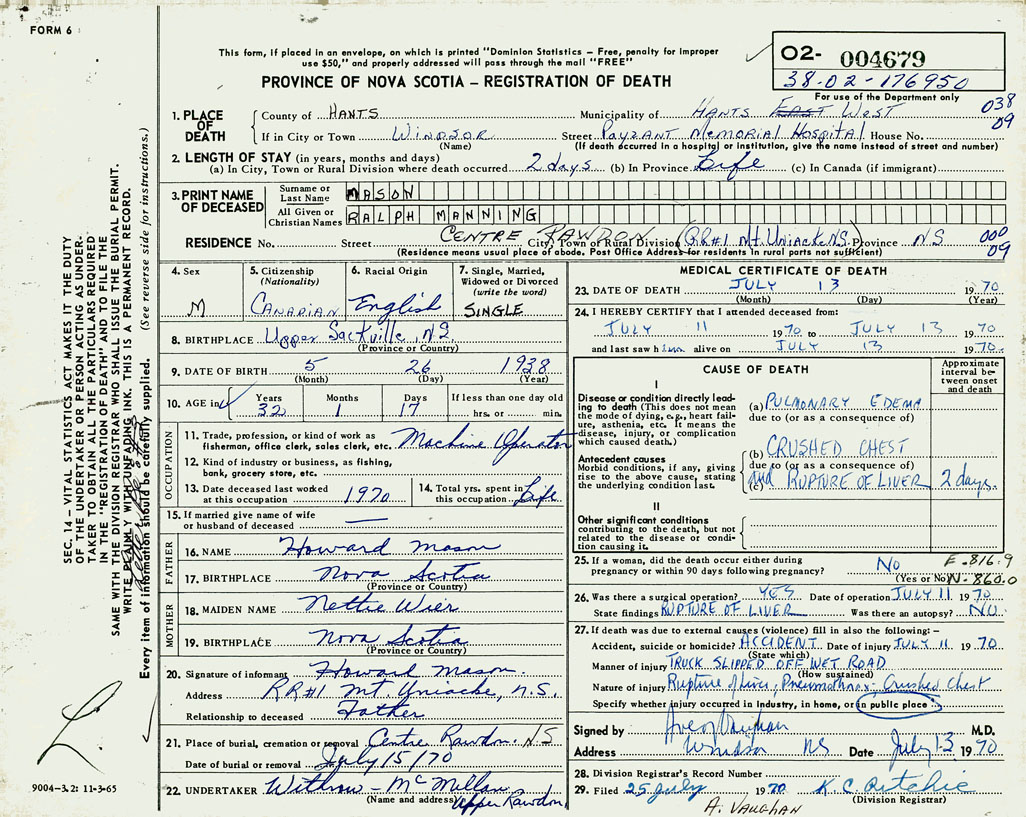 FORM 6
This form, if placed in an envelope, on which is printed "Dominion Statistics – Free, penalty for improper
use $50," and properly addressed will pass through the mail "FREE"
PROVINCE OF NOVA SCOTIA – REGISTRATION OF DEATH
02- 004679
38-02-176950
For use of the Department only
038
09
1. PLACE OF DEATH
County of HANTS Municipality of HANTS EAST WEST
If in City or Town WINDSOR Street Payzant Memorial Hospital House No.
(Name) (If death occurred in a hospital or institution, give the name instead of street and number)
2. LENGTH OF STAY (in years, months and days)
(a) In City, Town or Rural Division where death occurred 2 days (b) In Province Life (c) In Canada (if immigrant)
3. PRINT NAME OF DECEASED
Surname or Last Name MASON
All Given or Christian Names RALPH MANNING
RESIDENCE No. Street CENTRE RAWDON City, Town or Rural Division (RR#1 Mt. Uniacke NS.) Province NS 000
09
(Residence means usual place of abode. Post Office Address for residents in rural parts not sufficient)
4. Sex M
5. Citizenship (Nationality) CANADIAN
6. Racial Origin English
7. Single, Married, Widowed or Divorced (write the word) SINGLE
8. BIRTHPLACE Upper Sackville, N.S.
(Province or Country)
9. DATE OF BIRTH 5 26 1938
(Month) (Day) (Year)
10. AGE in Years 32 Months 1 Days 17 If less than one day old hrs. or min.
OCCUPATION
11. Trade, profession, or kind of work as
fisherman, office clerk, sales clerk, etc. Machine Operator
12. Kind of industry or business, as fishing,
bank, grocery store, etc.
13. Date deceased last worked
at this occupation 1970
14. Total yrs. spent in
this occupation Life
15. If married give name of wife
or husband of deceased —
FATHER
16. NAME Howard Mason
17. BIRTHPLACE Nova Scotia
(Province or Country)
MOTHER
18. MAIDEN NAME Nettie Wier
19. BIRTHPLACE Nova Scotia
(Province or Country)
20. Signature of informant Howard Mason
Address RR#1 Mt. Uniacke, N.S.
Relationship to deceased Father
21. Place of burial, cremation or removal Centre Rawdon. NS
Date of burial or removal July 15/70
22. UNDERTAKER Withrow - McMillan
(Name and address) Upper Rawdon,
MEDICAL CERTIFICATE OF DEATH
23. DATE OF DEATH JULY 13 1970
(Month) (Day) (Year)
24. I HEREBY CERTIFY that I attended deceased from:
JULY 11 1970 to JULY 13 1970
and last saw him alive on JULY 13 1970
CAUSE OF DEATH
Approximate interval between onset and death
I
Disease or condition directly leading to death (This does not mean the mode of dying, e.g., heart failure, asthenia, etc. It means the disease, injury, or complication which caused death.)
(a) PULMONARY EDEMA
due to (or as a consequence of)
Antecedent causes
Morbid conditions, if any, giving rise to the above cause, stating the underlying condition last.
(b) CRUSHED CHEST
due to (or as a consequence of)
(c) and RUPTURE OF LIVER 2 days.
II
Other significant conditions
contributing to the death, but not related to the disease or condition causing it.
25. If a woman, did the death occur either during
pregnancy or within 90 days following pregnancy? NO
(Yes or No)
E.816.9
N.860.0
26. Was there a surgical operation? YES Date of operation JULY 11 1970
State findings RUPTURE OF LIVER Was there an autopsy? NO
27. If death was due to external causes (violence) fill in also the following: –
Accident, suicide or homicide? ACCIDENT Date of injury JULY 11 1970
(State which)
Manner of injury TRUCK SLIPPED OFF WET ROAD
(How sustained)
Nature of injury Rupture of Liver, Pneumothorax - Crushed Chest
Specify whether injury occurred in Industry, in home, or in public place
Signed by Vaughan M.D.
Address Windsor NS Date July 13 1970
28. Division Registrar's Record Number
29. Filed 25 July 1970 K. C. Ritchie
(Division Registrar)
A. VAUGHAN
SEC. 14 – VITAL STATISTICS ACT MAKES IT THE DUTY
OF THE UNDERTAKER OR PERSON ACTING AS UNDER-
TAKER TO OBTAIN ALL THE PARTICULARS REQUIRED
IN THE "REGISTRATION OF DEATH" AND TO FILE THE
SAME WITH THE DIVISION REGISTRAR WHO SHALL ISSUE THE BURIAL PERMIT.
WRITE PLAINLY WITH UNFADING INK. THIS IS A PERMANENT RECORD.
Every item of information should be carefully supplied. (See reverse side for instructions.)
9004-3.2: 11-3-65